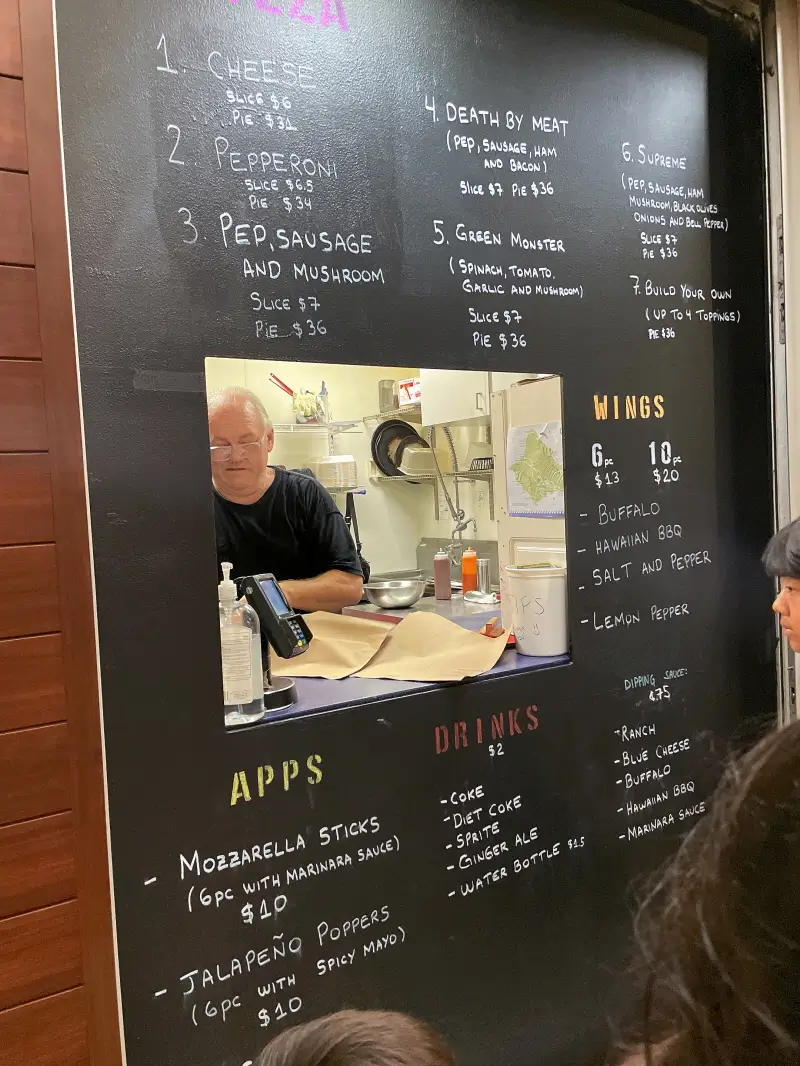 1. CHEESE
SLICE $6
PIE $31
2. PEPPERONI
SLICE $6.5
PIE $34
3. PEP, SAUSAGE
AND MUSHROOM
SLICE $7
PIE $36
4. DEATH BY MEAT
(PEP, SAUSAGE, HAM
AND BACON)
SLICE $7 PIE $36
5. GREEN MONSTER
(SPINACH, TOMATO,
GARLIC AND MUSHROOM)
SLICE $7
PIE $36
6. SUPREME
(PEP, SAUSAGE, HAM
MUSHROOM, BLACK OLIVES
ONIONS AND BELL PEPPER)
SLICE $7
PIE $36
7. BUILD YOUR OWN
(UP TO 4 TOPPINGS)
PIE $36
WINGS
6pc 10pc
$13 $20
- BUFFALO
- HAWAIIAN BBQ
- SALT AND PEPPER
- LEMON PEPPER
DIPPING SAUCE:
$.75
- RANCH
- BLUE CHEESE
- BUFFALO
- HAWAIIAN BBQ
- MARINARA SAUCE
DRINKS
$2
- COKE
- DIET COKE
- SPRITE
- GINGER ALE
- WATER BOTTLE $1.5
APPS
- MOZZARELLA STICKS
(6pc WITH MARINARA SAUCE)
$10
- JALAPEÑO POPPERS
(6pc WITH SPICY MAYO)
$10